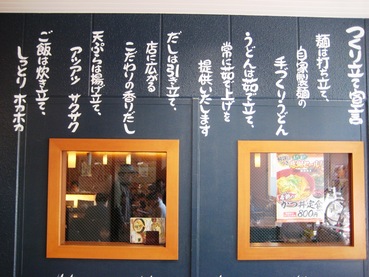 つくり立て宣言
麺は打ち立て、
自家製麺の
手づくりうどん
うどんは茹で立て、
常に茹で上げを
提供いたします
だしは引き立て、
店に広がる
こだわりの香りだし
天ぷらは揚げ立て、
アツアツ サクサク
ご飯は炊き立て、
しっとり ホカホカ
カツ丼定食
800円